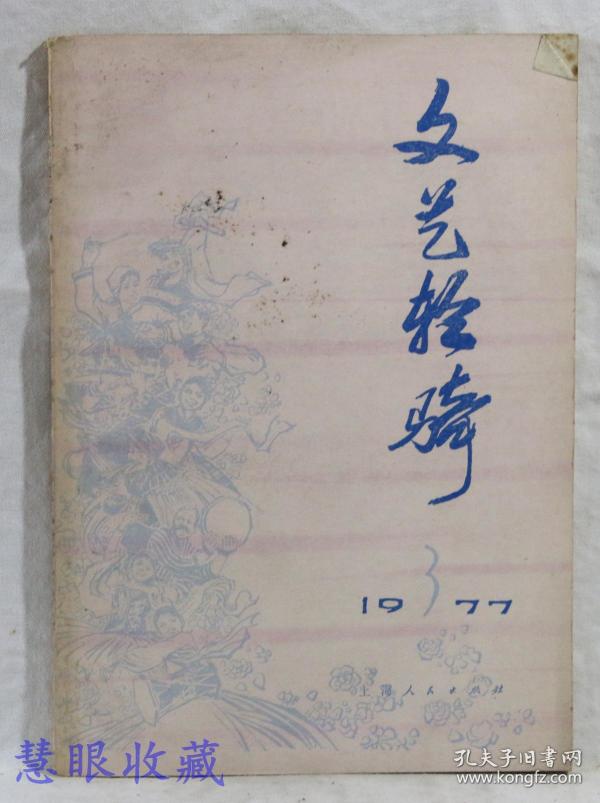 文艺轻骑
3
1977
上海人民出版社
慧眼收藏
孔夫子旧书网
www.kongfz.com